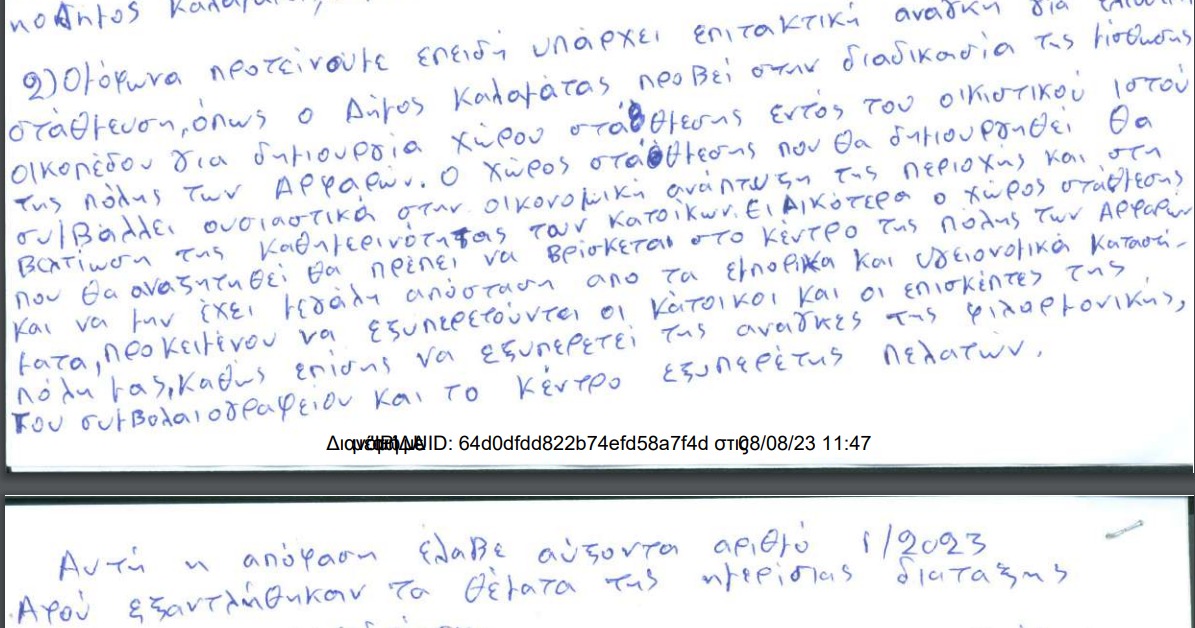 πο Δήμος Καλαμάτας,
2) Ομόφωνα προτείνουμε επειδή υπάρχει επιτακτική ανάγκη για
στάθμευση, όπως ο Δήμος Καλαμάτας προβεί στην διαδικασία της μίσθωσης
οικοπέδου για δημιουργία χώρου στάθμεσης εντός του οικιστικού ιστού
της πόλης των Αρφαρών. Ο χώρος στάθμεσης που θα δημιουργηθεί θα
συμβάλλει ουσιαστικά στην οικονομική ανάπτυξη της περιοχής και στη
βελτίωση της καθημερινότητας των κατοίκων. Ειδικότερα ο χώρος στάθμεσης
που θα αναζητηθεί θα πρέπει να βρίσκεται στο κέντρο της πόλης των Αρφαρών
και να μην έχει μεγάλη απόσταση απο τα εμπορικα και υγειονομικά καταστή-
ματα, προκειμένου να εξυπερετούνται οι κάτοικοι και οι επισκέπτες της
πόλη μας, καθώς επίσης να εξυπερετεί της αναγκες της φιλαρμονικής,
του συμβολαιογραφείου και το κέντρο εξυπερέτης πελατών.
ID: 64d0dfdd822b74efd58a7f4d στις 08/08/23 11:47
Αυτή η απόφαση έλαβε αύξοντα αριθμό 1/2023
Αφού εξαντλήθηκαν τα θέματα της ημερίσιας διαταξης